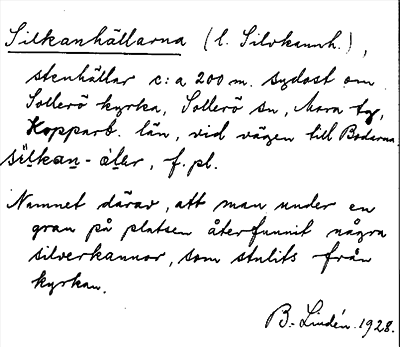 Silkanhällarna (l. Silvkannh.),
stenhällar c:a 200 m. sydost om
Sollerö kyrka, Sollerö sn, Mora tg,
Kopparb. län, vid vägen till Bodarna.
silkan-äler, f. pl.
Namnet därav, att man under en
gran på platsen återfunnit några
silverkannor, som stulits från
kyrkan.
B. Lindén. 1928.